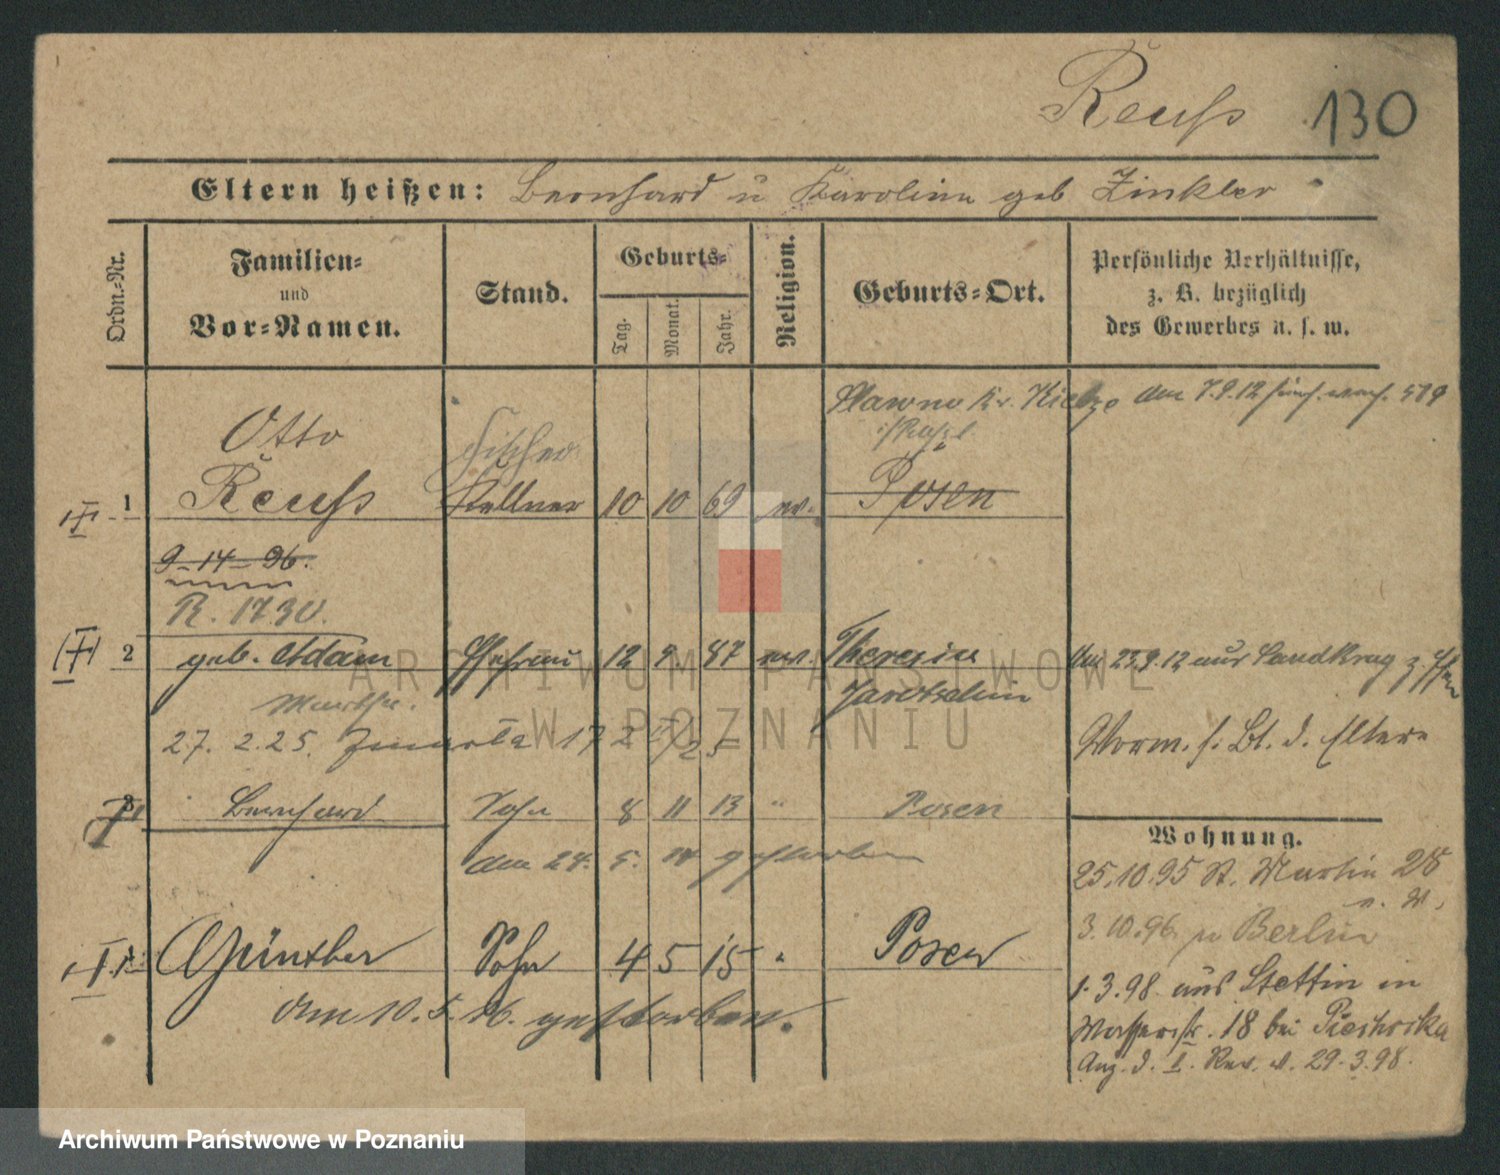 Reuss 130
Eltern heißen: Bernhard u Karoline geb Zinkler
Ordn.-Nr.
Familien-
und
Vor-Namen.
Stand.
Geburts-
Tag.
Monat.
Jahr.
Religion.
Geburts-Ort.
Persönliche Verhältnisse,
z. B. bezüglich
des Gewerbes u. s. w.
Slawno Kr. am 7.9.12
Otto
Fischer
1 Reuss Kellner 10 10 69 ev. Posen
9-14-96.
R. 1730.
2 geb. Adam Ehefrau 12 9. 87 ev. Theresin
Am 23.9.12 aus
Jarotschin
Martha.
27. 2. 25.
d. Eltern
3 Bernhard Sohn 8 11 13 " Posen
den 24. 5. 14 gestorben
Wohnung.
25.10.95 St. Martin 28
3.10.96 Berlin
4 Günther Sohn 4 5 15 " Posen
1.3.98 aus Stettin in
Am 10. 5. 16. gestorben.
Wasserstr. 18 bei
Anz. d. I. Rev. v. 29.3.98.
ARCHIWUM PAŃSTWOWE
W POZNANIU
Archiwum Państwowe w Poznaniu